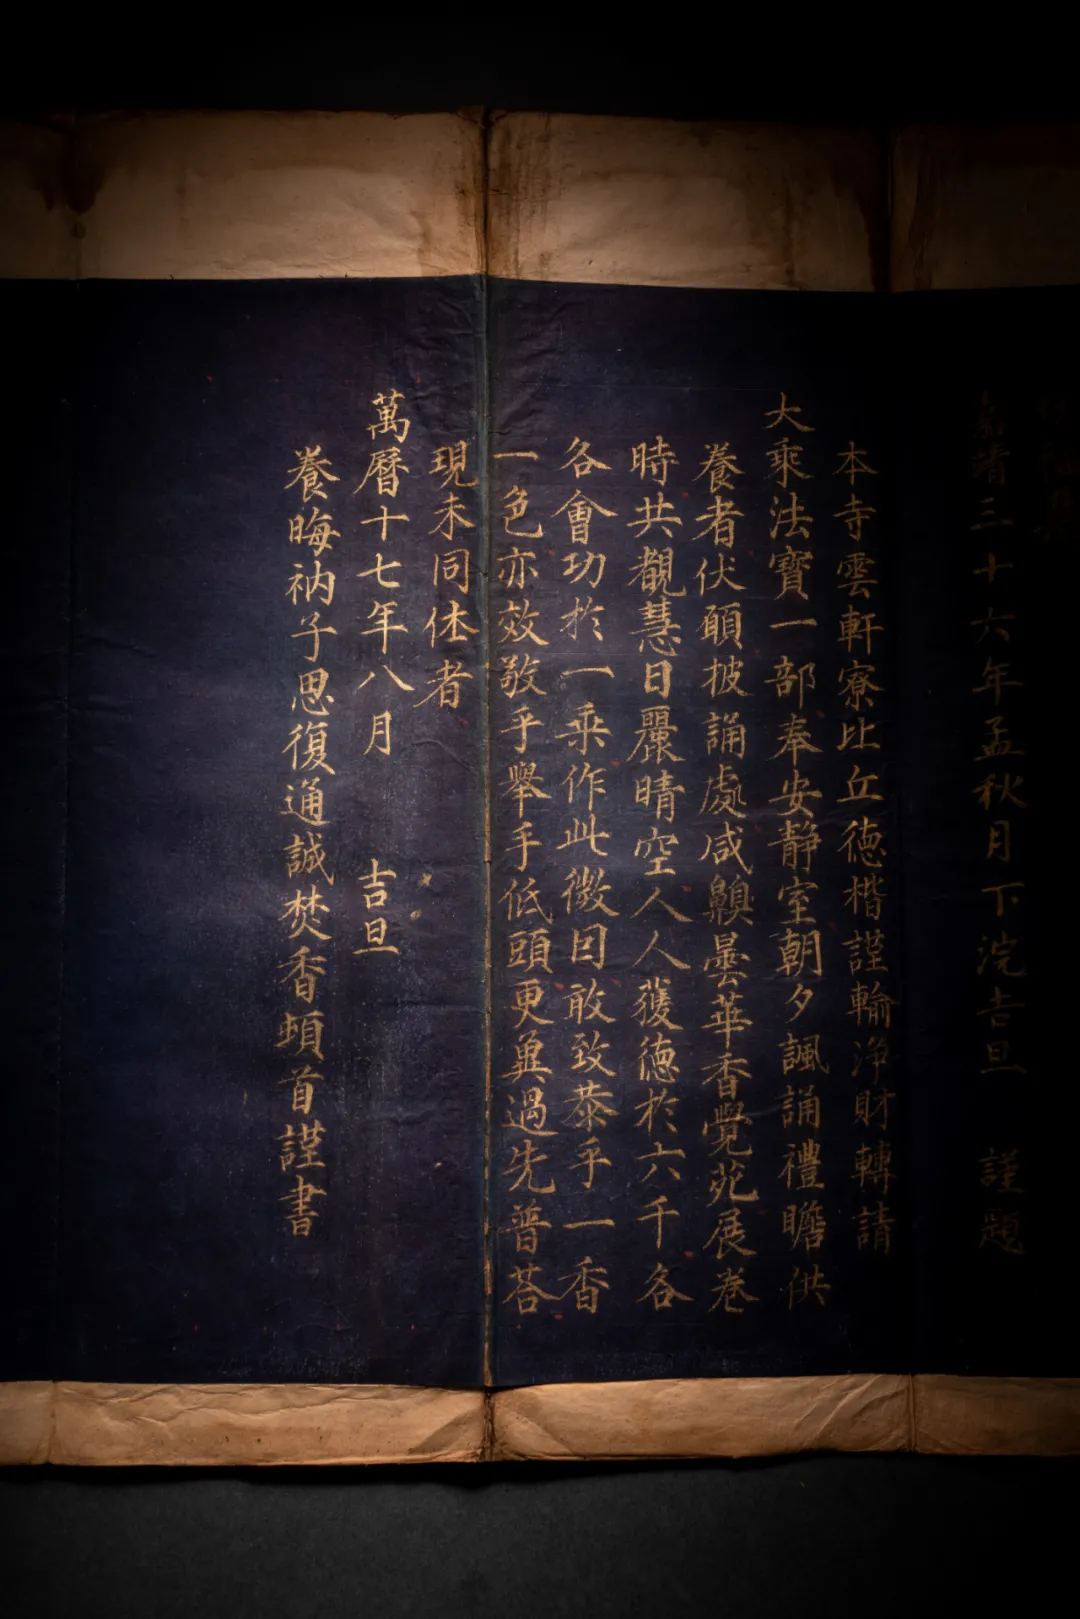 嘉靖三十六年孟秋月下浣吉旦 謹題
本寺雲軒寮比丘德楷謹輸淨財轉請
大乘法寶一部奉安靜室朝夕諷誦禮瞻供
養者伏願披誦處咸齅曇華香覺苑展卷
時共覩慧日麗晴空人人獲德於六千各
各會功於一乘作此微因敢致恭乎一香
一色亦效敬乎舉手低頭更兾過先普荅
現未同休者
萬曆十七年八月 吉旦
養晦衲子思復通誠焚香頓首謹書